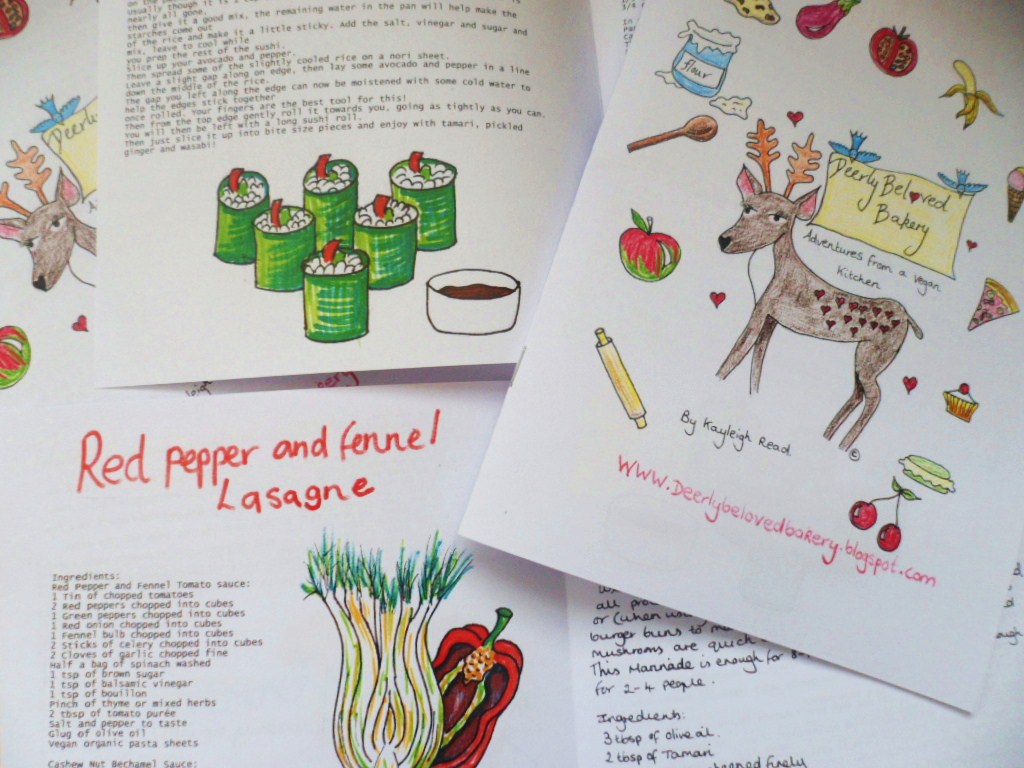 usually though it is
nearly all gone.
then give it a good mix, the remaining water in the pan will help make the
starches come out
of the rice and make it a little sticky. Add the salt, vinegar and sugar and
mix, leave to cool while
you prep the rest of the sushi.
Slice up your avocado and pepper.
Then spread some of the slightly cooled rice on a nori sheet.
Leave a slight gap along on edge, then lay some avocado and pepper in a line
down the middle of the rice.
The gap you left along the edge can now be moistened with some cold water to
help the edges stick together
once rolled. Your fingers are the best tool for this!
Then from the top edge gently roll it towards you, going as tightly as you can.
You will then be left with a long sushi roll.
Then just slice it up into bite size pieces and enjoy with tamari, pickled
ginger and wasabi!
Deerly
flour
Deerly Beloved
Bakery
Adventures from a Vegan
Kitchen
By Kayleigh Read
©
www.Deerlybelovedbakery.blogspot.com
Red pepper and fennel
Lasagne
Ingredients:
Red Pepper and Fennel Tomato sauce:
1 Tin of chopped tomatoes
2 Red peppers chopped into cubes
1 Green peppers chopped into cubes
1 Red onion chopped into cubes
1 Fennel bulb chopped into cubes
2 Sticks of celery chopped into cubes
2 Cloves of garlic chopped fine
Half a bag of spinach washed
1 tsp of brown sugar
1 tsp of balsamic vinegar
1 tsp of bouillon
Pinch of thyme or mixed herbs
2 tbsp of tomato purée
Salt and pepper to taste
Glug of olive oil
Vegan organic pasta sheets
Cashew Nut Bechamel Sauce:
all
or (when
burger buns to
mushrooms are quick
This Marinade is enough for
for 2-4 people.
Ingredients:
3 tbsp of Olive oil
2 tbsp of Tamari
finely